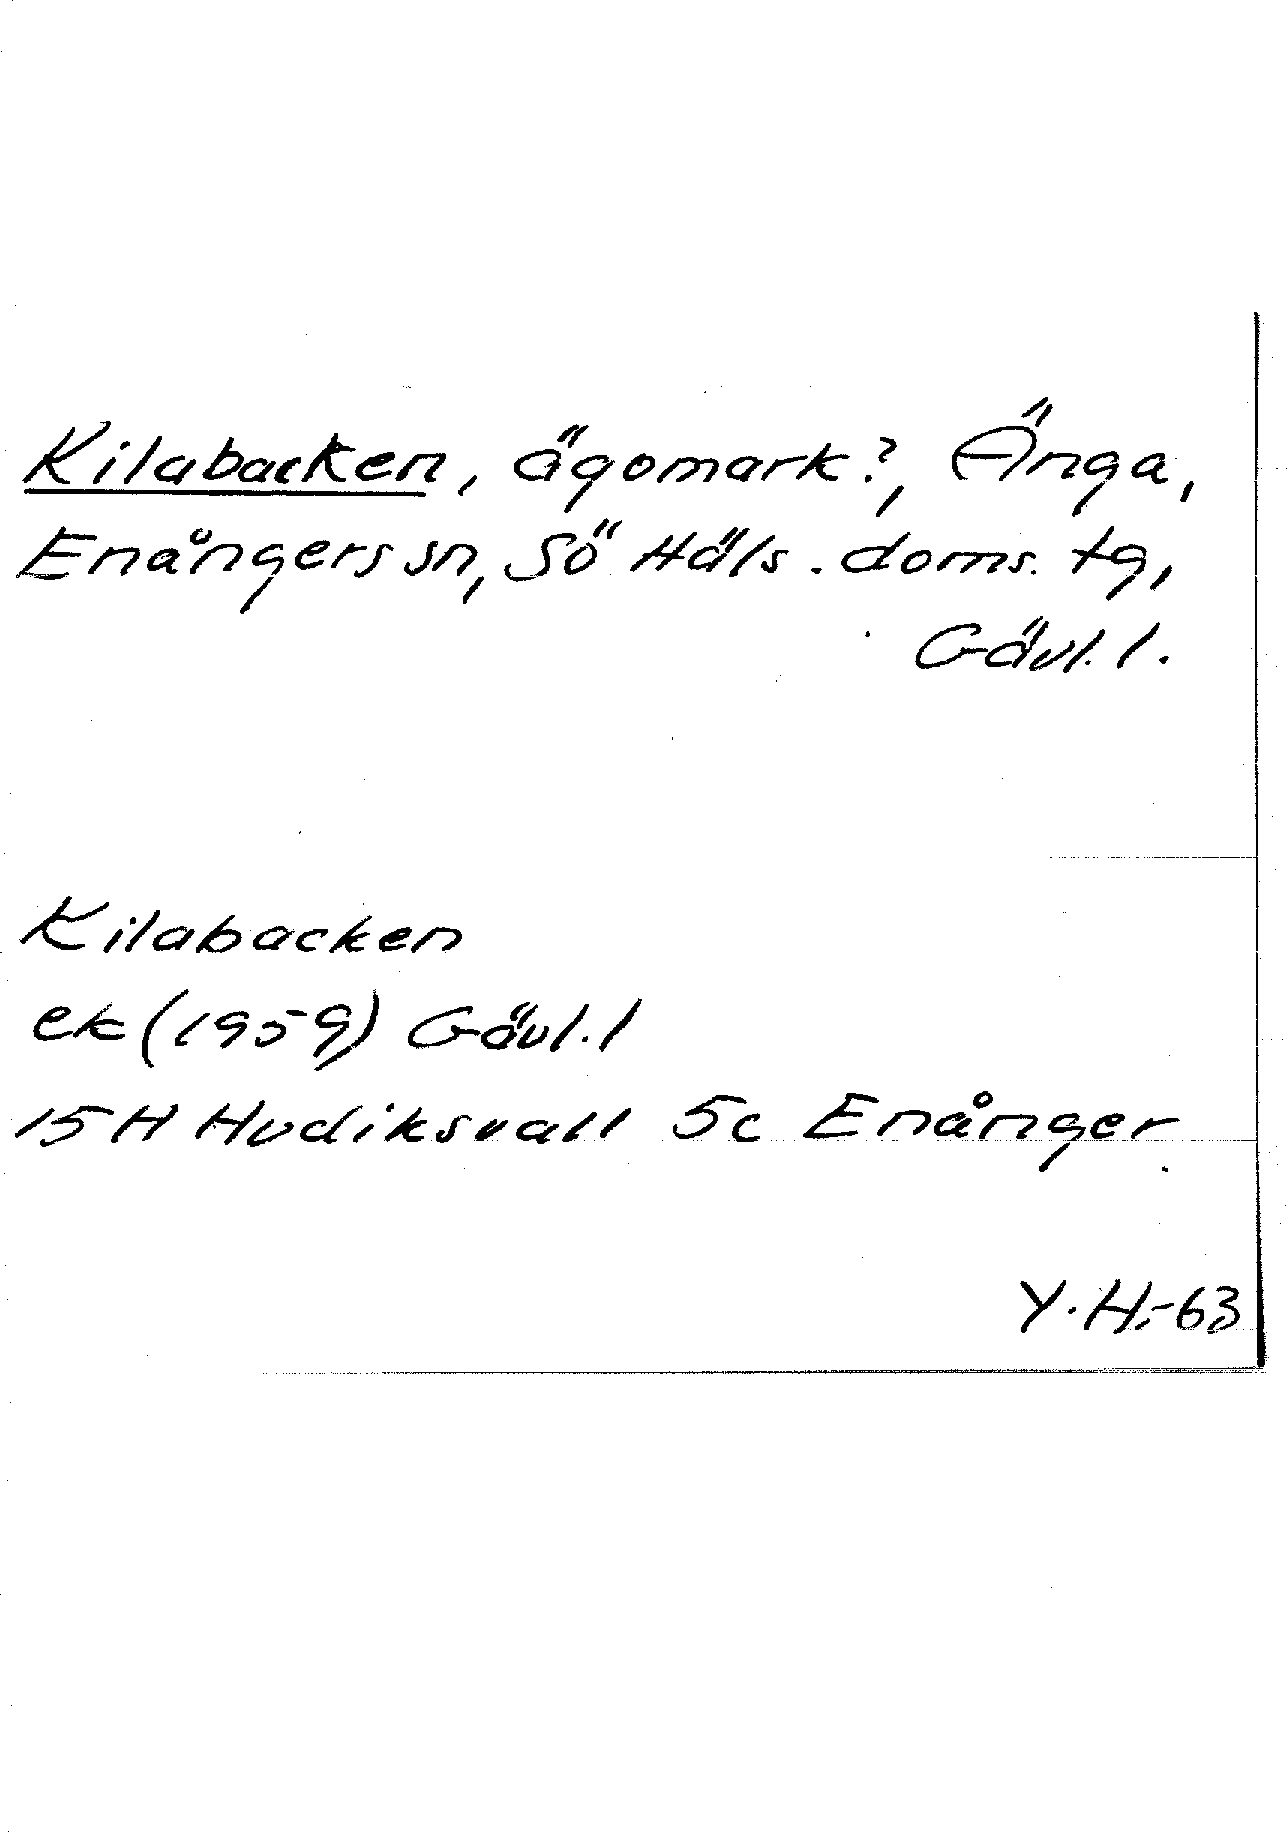 Kilabacken, ägomark?, Änga,
Enångers sn, Sö Häls. doms. tg,
Gävl. l.
Kilabacken
ek (1959) Gävl. l
15H Hudiksvall 5c Enånger
Y.H.-63